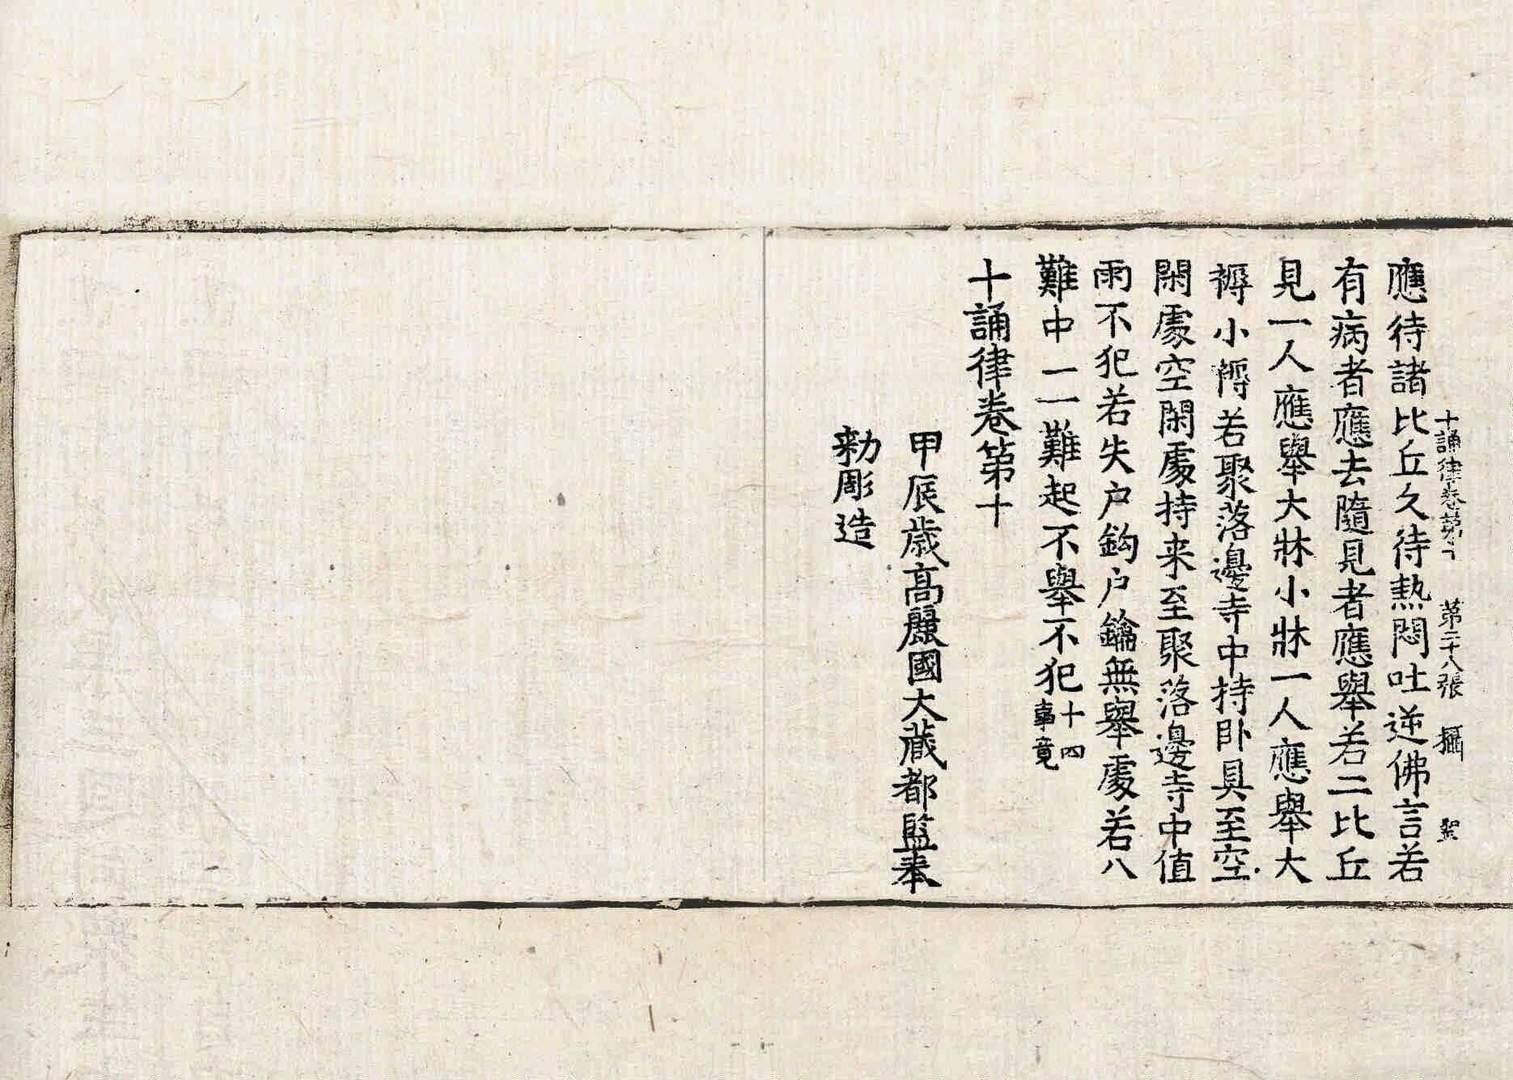 十誦律卷第十 第二十八張 攝
應待諸比丘久待熱悶吐逆佛言若
有病者應去隨見者應舉若二比丘
見一人應舉大牀小牀一人應舉大
褥小褥若聚落邊寺中持卧具至空
閑處空閑處持来至聚落邊寺中值
雨不犯若失户鉤户鑰無舉處若八
難中一一難起不舉不犯十四事竟
十誦律卷第十
甲辰歳高麗國大藏都監奉
勑彫造